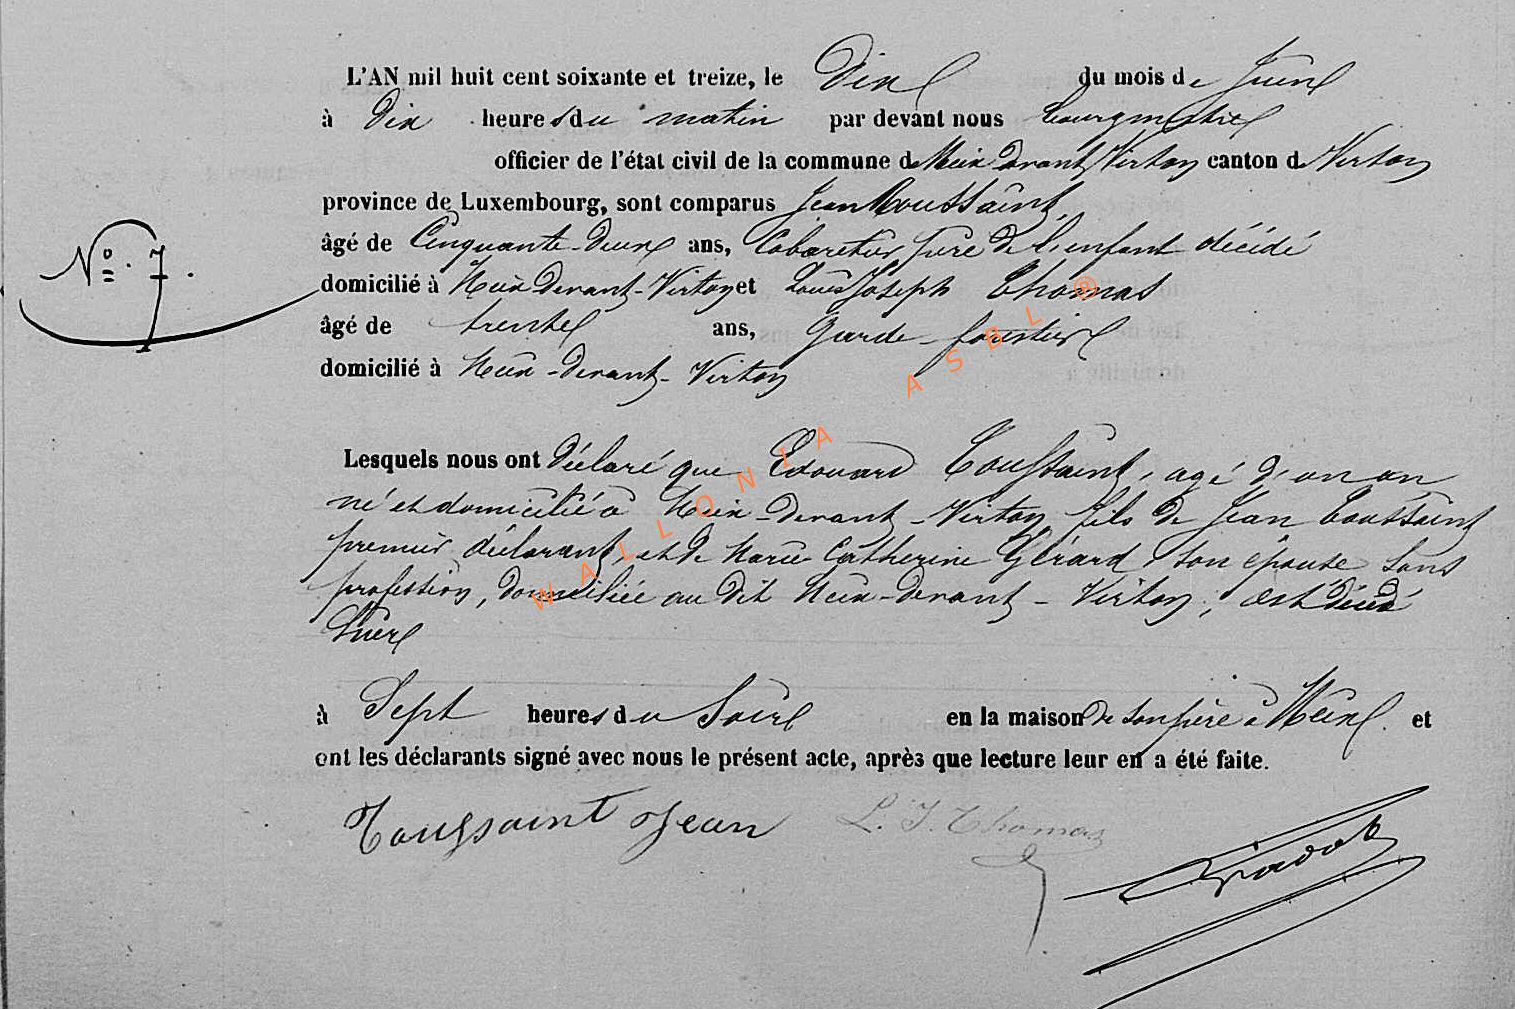 L'AN mil huit cent soixante et treize, le Dix du mois de Juin
à Dix heures du matin par devant nous bourgmestre
officier de l'état civil de la commune de Meix-devant-Virton canton de Virton
province de Luxembourg, sont comparus Jean Toussaint
N° 7.
âgé de Cinquante-deux ans, Cabaretier, père de l'enfant décédé
domicilié à Meix-devant-Virton et Louis Joseph Thomas
âgé de trente ans, Garde-forestier
domicilié à Meix-devant-Virton
Lesquels nous ont déclaré que Edouard Toussaint, agé d'un an
né et domicilié à Meix-devant-Virton, fils de Jean Toussaint
premier déclarant, et de Marie Catherine Gérard, son épouse sans
profession, domiciliée au dit Meix-devant-Virton, est décédé
hier
à Sept heures du Soir en la maison de son père à Meix. et
ont les déclarants signé avec nous le présent acte, après que lecture leur en a été faite.
Toussaint Jean L. J. Thomas
WALLONIA ASBL ®